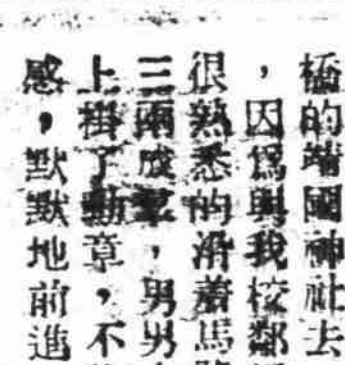 橋的靖國神社去
，因爲與我校鄰
很熟悉的沿着馬
三兩成羣，男男
上掛了勳章，不
感，默默地前進